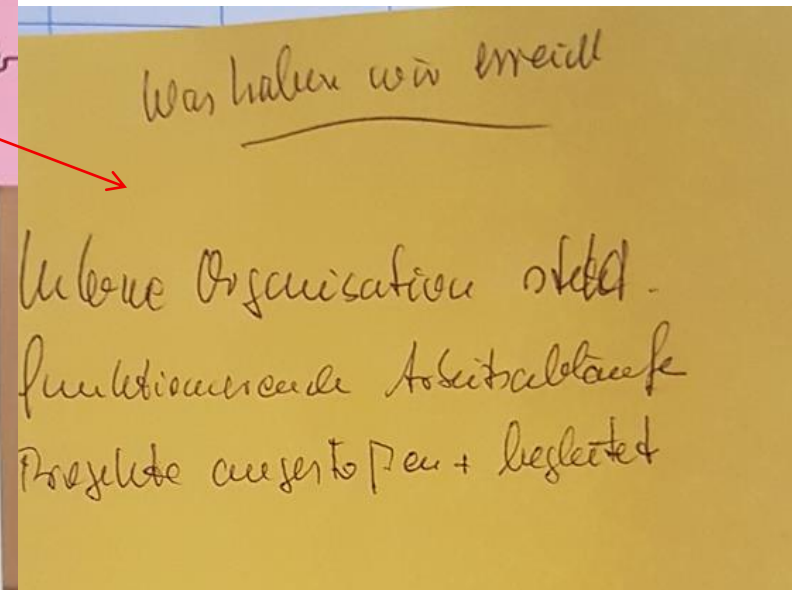 Was haben wir erreicht
Interne Organisation steht.
funktionierende Arbeitsabläufe
Projekte angestoßen + begleitet